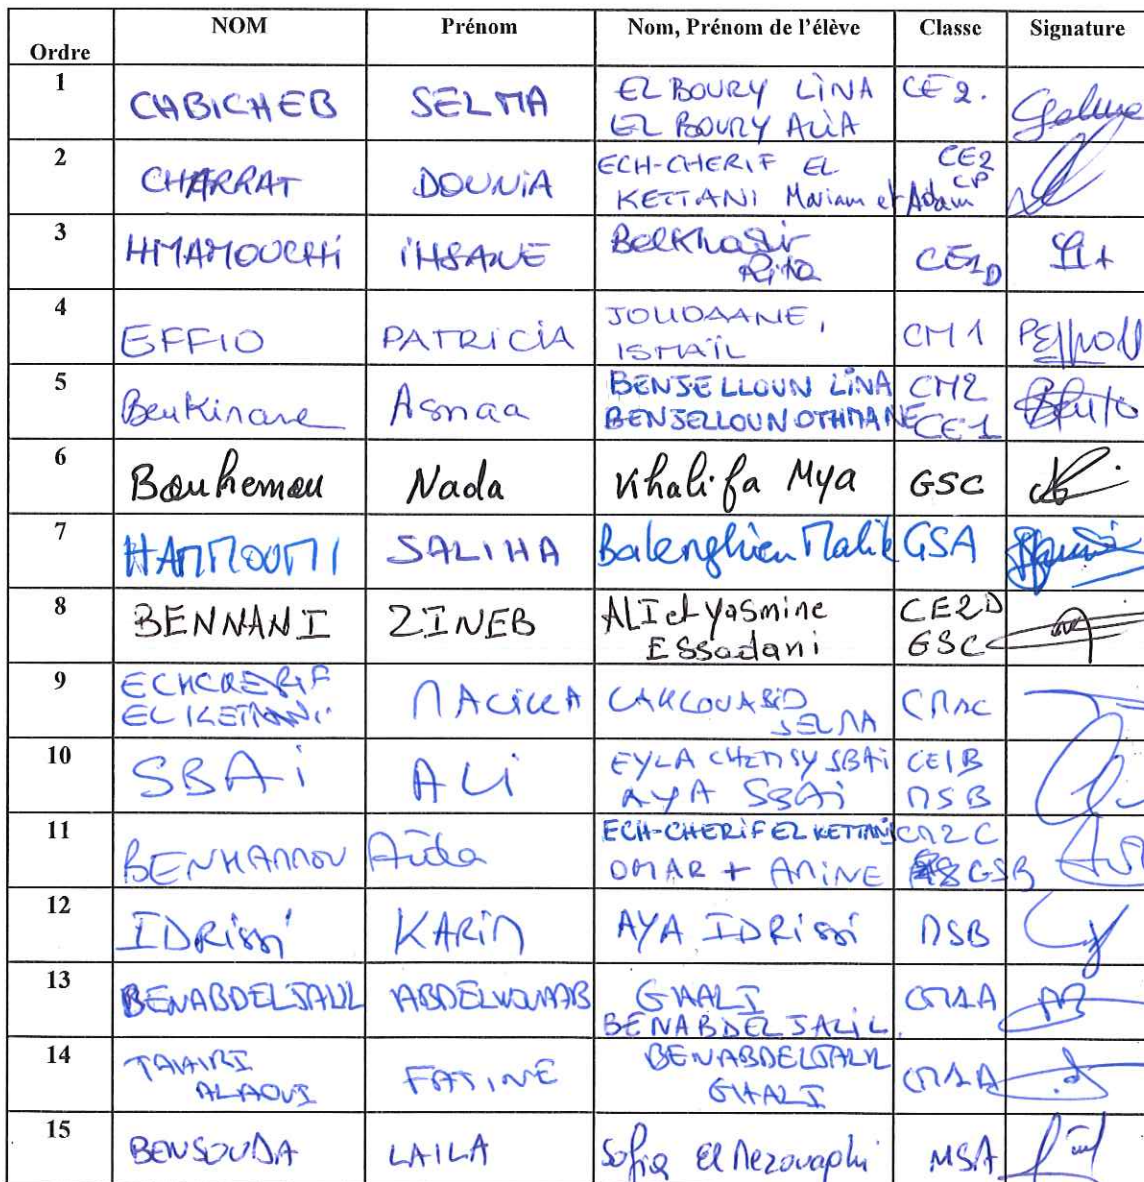 Ordre NOM Prénom Nom, Prénom de l'élève Classe Signature
1 CHBICHEB SELMA EL BOURY LINA CE2.
EL BOURY ALIA
2 CHARRAT DOUNIA ECH-CHERIF EL CE2
KETTANI Mariam et Adam CP
3 HMAMOUCHI IHSANE Belkhadir CE1D
Rita
4 EFFIO PATRICIA JOUDAANE, CM1
ISMAÏL
5 Benkirane Asmaa BENJELLOUN LINA CM2
BENJELLOUN OTHMANE CE1
6 Bouhemou Nada Khalifa Mya GSC
7 HAMMOUMI SALIHA Balenghien Malik GSA
8 BENNANI ZINEB ALI et Yasmine CE2D
Essadani GSC
9 ECHCHERIF
EL KETTANI MALIKA SELMA
10 SBAi ALi EYLA CHEMSY SBAi CE1B
AYA SBAi MSB
11 BENHAMMOU Aïda ECH-CHERIF EL KETTANI CM2C
OMAR + AMINE GSB
12 IDRissi KARiM AYA IDRissi MSB
13 BENABDELJALIL ABDELWOUAHAB GHALI CM1A
BENABDELJALIL
14 TAHIRI FATINE BENABDELJALIL CM1A
ALAOUI GHALI
15 BENSOUDA LAILA Sofia MSA